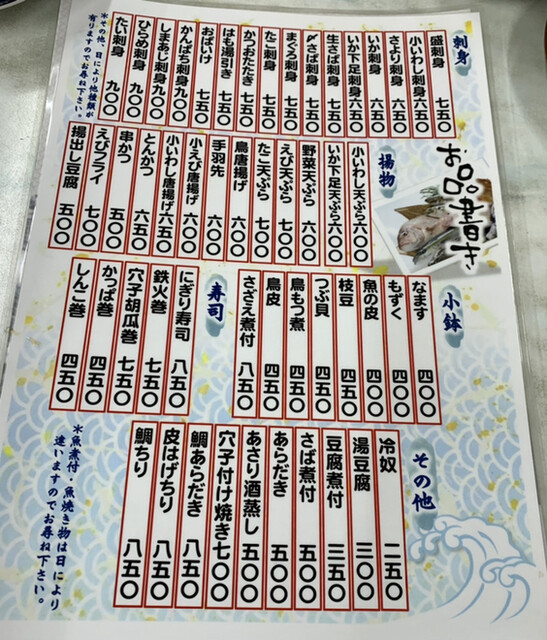 お品書き
刺身
盛刺身 七五〇
小いわし刺身 六五〇
さより刺身 六五〇
いか刺身 六五〇
いか下足刺身 六五〇
生さば刺身 七五〇
〆さば刺身 七五〇
まぐろ刺身 七五〇
たこ刺身 七五〇
かつおたたき 七五〇
はも湯引き 七五〇
おばいけ 七五〇
かんぱち刺身 九〇〇
しまあじ刺身 九〇〇
ひらめ刺身 九〇〇
たい刺身 九〇〇
＊その他、日により他種類が
有りますのでお尋ね下さい。
揚物
小いわし天ぷら 六〇〇
いか下足天ぷら 六〇〇
野菜天ぷら 六〇〇
えび天ぷら 七〇〇
たこ天ぷら 七〇〇
鳥唐揚げ 六〇〇
手羽先 六〇〇
小えび唐揚げ 六〇〇
小いわし唐揚げ 六五〇
とんかつ 六五〇
串かつ 五〇〇
えびフライ 七〇〇
揚出し豆腐 五〇〇
小鉢
なます 四〇〇
もずく 四〇〇
魚の皮 四〇〇
枝豆 四五〇
つぶ貝 四五〇
鳥もつ煮 四五〇
鳥皮 四五〇
さざえ煮付 八五〇
寿司
にぎり寿司 八五〇
鉄火巻 七五〇
穴子胡瓜巻 七五〇
かっぱ巻 四五〇
しんこ巻 四五〇
その他
冷奴 二五〇
湯豆腐 三〇〇
豆腐煮付 三五〇
さば煮付 五〇〇
あらだき 五〇〇
あさり酒蒸し 五〇〇
穴子付け焼き 七〇〇
鯛あらだき 八五〇
皮はげちり 八五〇
鯛ちり 八五〇
＊魚煮付・魚焼き物は日により
違いますのでお尋ね下さい。